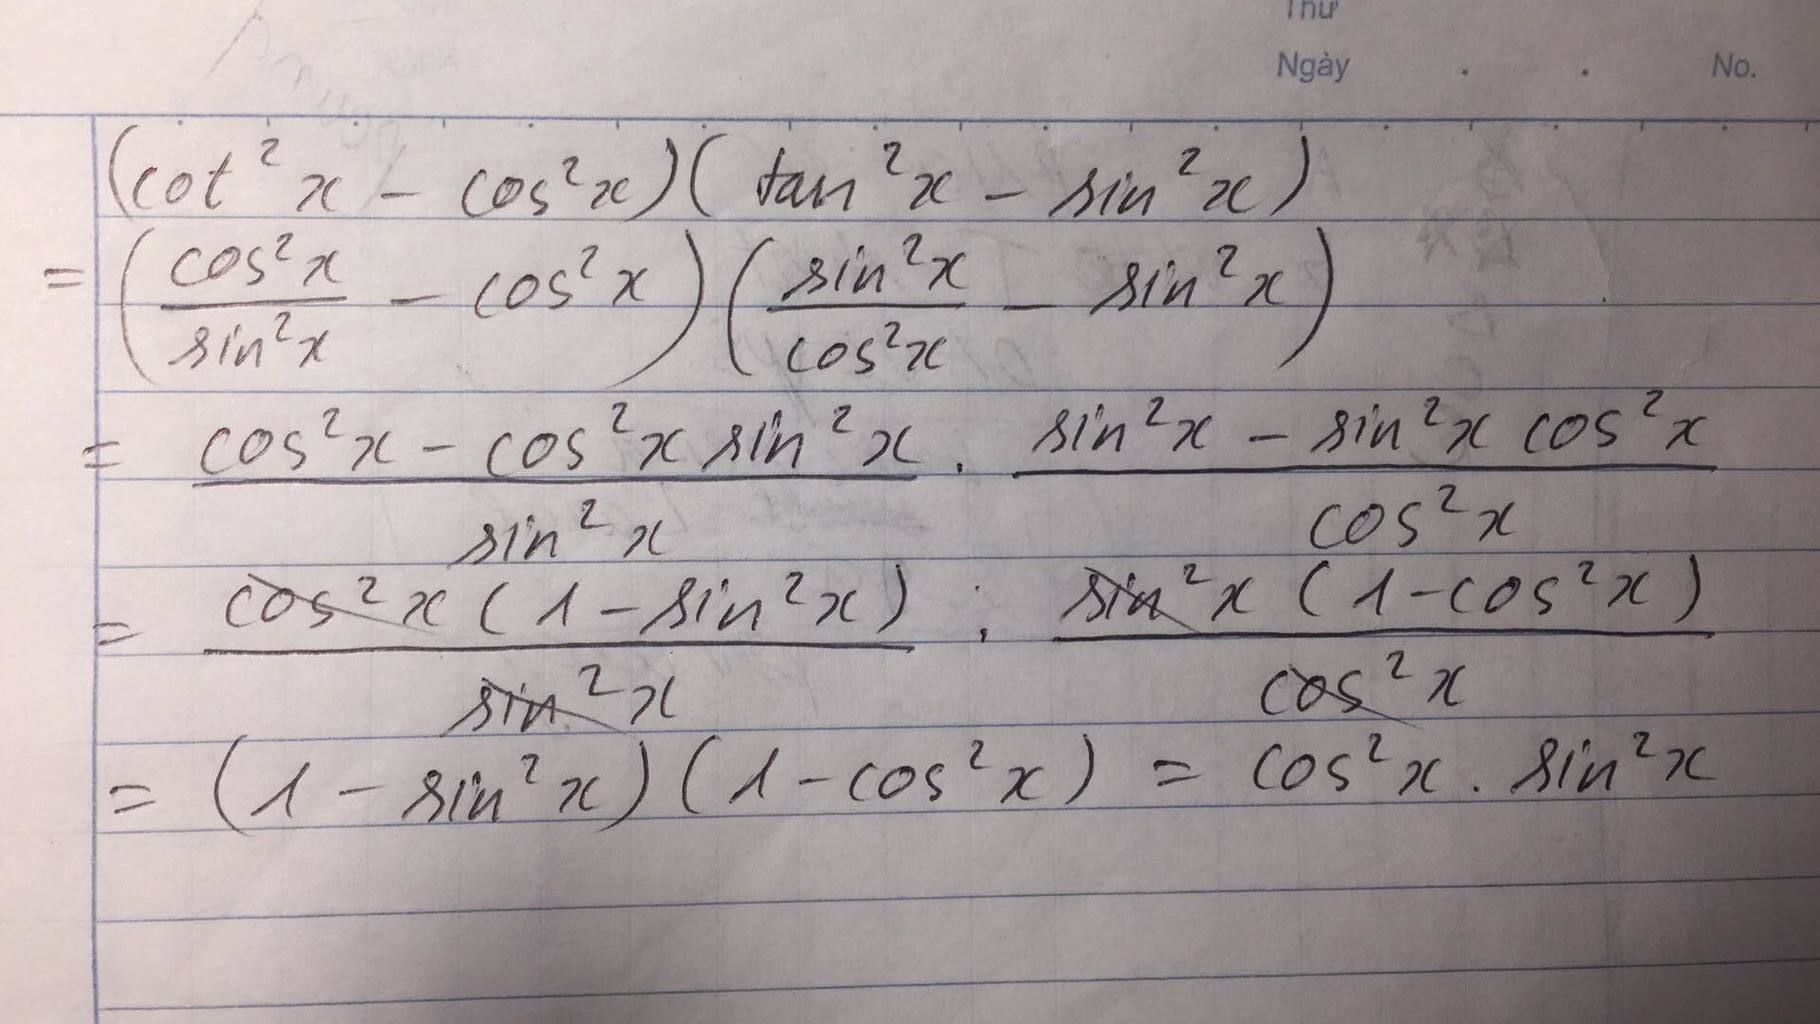 Thứ
Ngày . . No.
(cot²x - cos²x)(tan²x - sin²x)
= (cos²x/sin²x - cos²x)(sin²x/cos²x - sin²x)
= (cos²x - cos²x sin²x)/(sin²x) . (sin²x - sin²x cos²x)/(cos²x)
= (cos²x(1 - sin²x))/(sin²x) . (sin²x(1 - cos²x))/(cos²x)
= (1 - sin²x)(1 - cos²x) = cos²x . sin²x